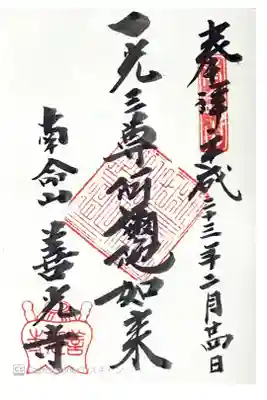 奉拝 平成二十三年二月廿四日
一光三尊阿彌陀如来
南命山 善光寺